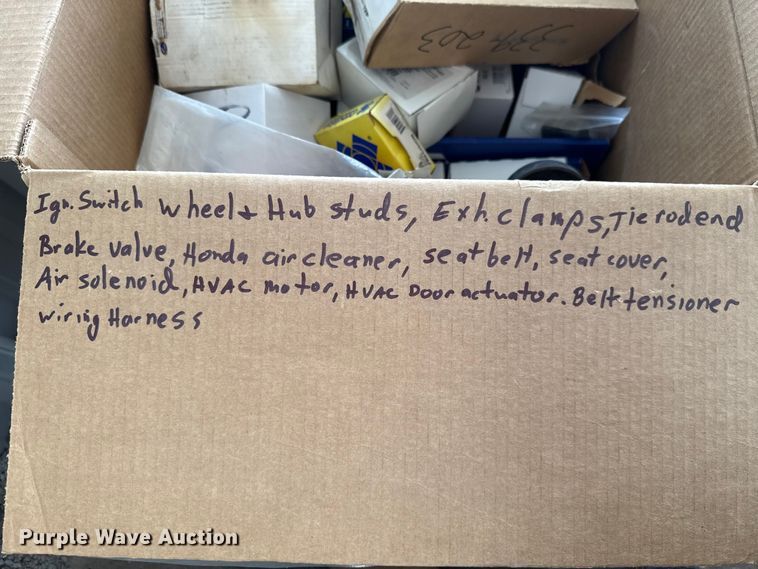 339-203
Ign. Switch Wheel + Hub studs, Exh. clamps, Tie rod end
Brake valve, Honda air cleaner, seat belt, seat cover,
Air solenoid, HVAC motor, HVAC Door actuator. Belt tensioner
wiring Harness
Purple Wave Auction